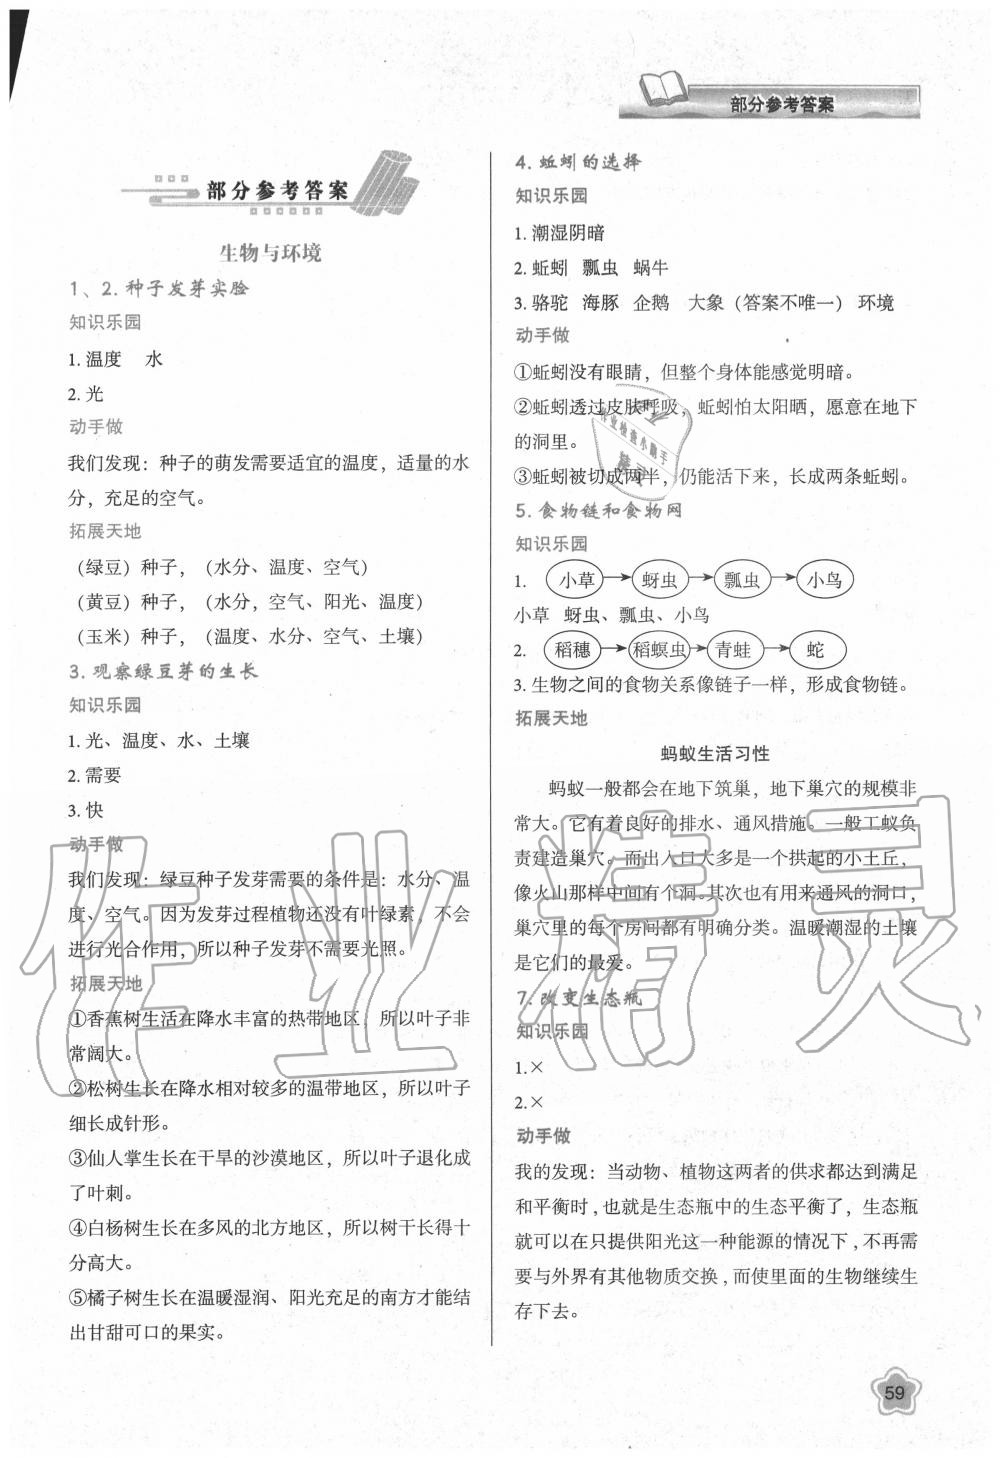 部分参考答案
部分参考答案
生物与环境
1、2. 种子发芽实验
知识乐园
1. 温度　水
2. 光
动手做
我们发现：种子的萌发需要适宜的温度，适量的水
分，充足的空气。
拓展天地
（绿豆）种子，（水分、温度、空气）
（黄豆）种子，（水分，空气、阳光、温度）
（玉米）种子，（温度、水分、空气、土壤）
3. 观察绿豆芽的生长
知识乐园
1. 光、温度、水、土壤
2. 需要
3. 快
动手做
我们发现：绿豆种子发芽需要的条件是：水分、温
度、空气。因为发芽过程植物还没有叶绿素，不会
进行光合作用，所以种子发芽不需要光照。
拓展天地
①香蕉树生活在降水丰富的热带地区，所以叶子非
常阔大。
②松树生长在降水相对较多的温带地区，所以叶子
细长成针形。
③仙人掌生长在干旱的沙漠地区，所以叶子退化成
了叶刺。
④白杨树生长在多风的北方地区，所以树干长得十
分高大。
⑤橘子树生长在温暖湿润、阳光充足的南方才能结
出甘甜可口的果实。
4. 蚯蚓的选择
知识乐园
1. 潮湿阴暗
2. 蚯蚓　瓢虫　蜗牛
3. 骆驼　海豚　企鹅　大象（答案不唯一）环境
动手做
①蚯蚓没有眼睛，但整个身体能感觉明暗。
②蚯蚓透过皮肤呼吸，蚯蚓怕太阳晒，愿意在地下
的洞里。
③蚯蚓被切成两半，仍能活下来，长成两条蚯蚓。
5. 食物链和食物网
知识乐园
1. 小草→蚜虫→瓢虫→小鸟
小草　蚜虫、瓢虫、小鸟
2. 稻穗→稻螟虫→青蛙→蛇
3. 生物之间的食物关系像链子一样，形成食物链。
拓展天地
蚂蚁生活习性
蚂蚁一般都会在地下筑巢，地下巢穴的规模非
常大。它有着良好的排水、通风措施。一般工蚁负
责建造巢穴。而出入口大多是一个拱起的小土丘，
像火山那样中间有个洞。其次也有用来通风的洞口，
巢穴里的每个房间都有明确分类。温暖潮湿的土壤
是它们的最爱。
7. 改变生态瓶
知识乐园
1.×
2.×
动手做
我的发现：当动物、植物这两者的供求都达到满足
和平衡时，也就是生态瓶中的生态平衡了，生态瓶
就可以在只提供阳光这一种能源的情况下，不再需
要与外界有其他物质交换，而使里面的生物继续生
存下去。
作业精灵
作业检查小助手
精灵
59